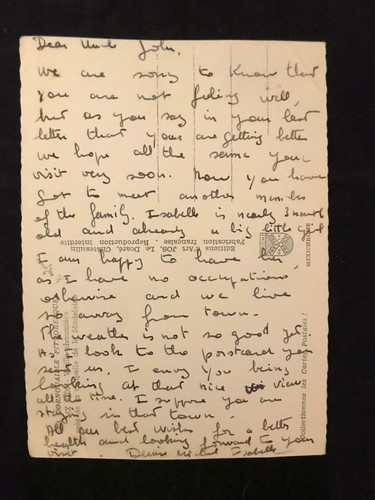 Dear Uncle John,
We are sorry to know that
you are not feeling well,
but as you say in your last
letter that your are getting better
we hope all the same your
visit very soon. Now you have
got to meet another member
of the family. Isabelle is nearly 3 month
old and already a big little girl
I am happy to have her
as I have no occupations,
otherwise and we live
so away from town.
The weather is not so good yet.
look to the postcard you
sent us, I envy you being
looking at that nice view
all the time. I suppose you are
staying in that town.
All our best wishes for a better
health and looking forward to your
visit. Isabelle
Editions d'Art JOS, Le Doaré, Châteaulin
Fabrication française. Reproduction interdite
MEXICHROME
Collectionnez les Cartes Postales !
CORNOUAILLE PITTORESQUE